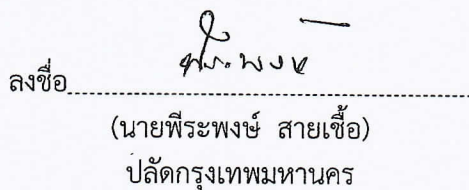 ลงชื่อ
(นายพีระพงษ์ สายเชื้อ)
ปลัดกรุงเทพมหานคร